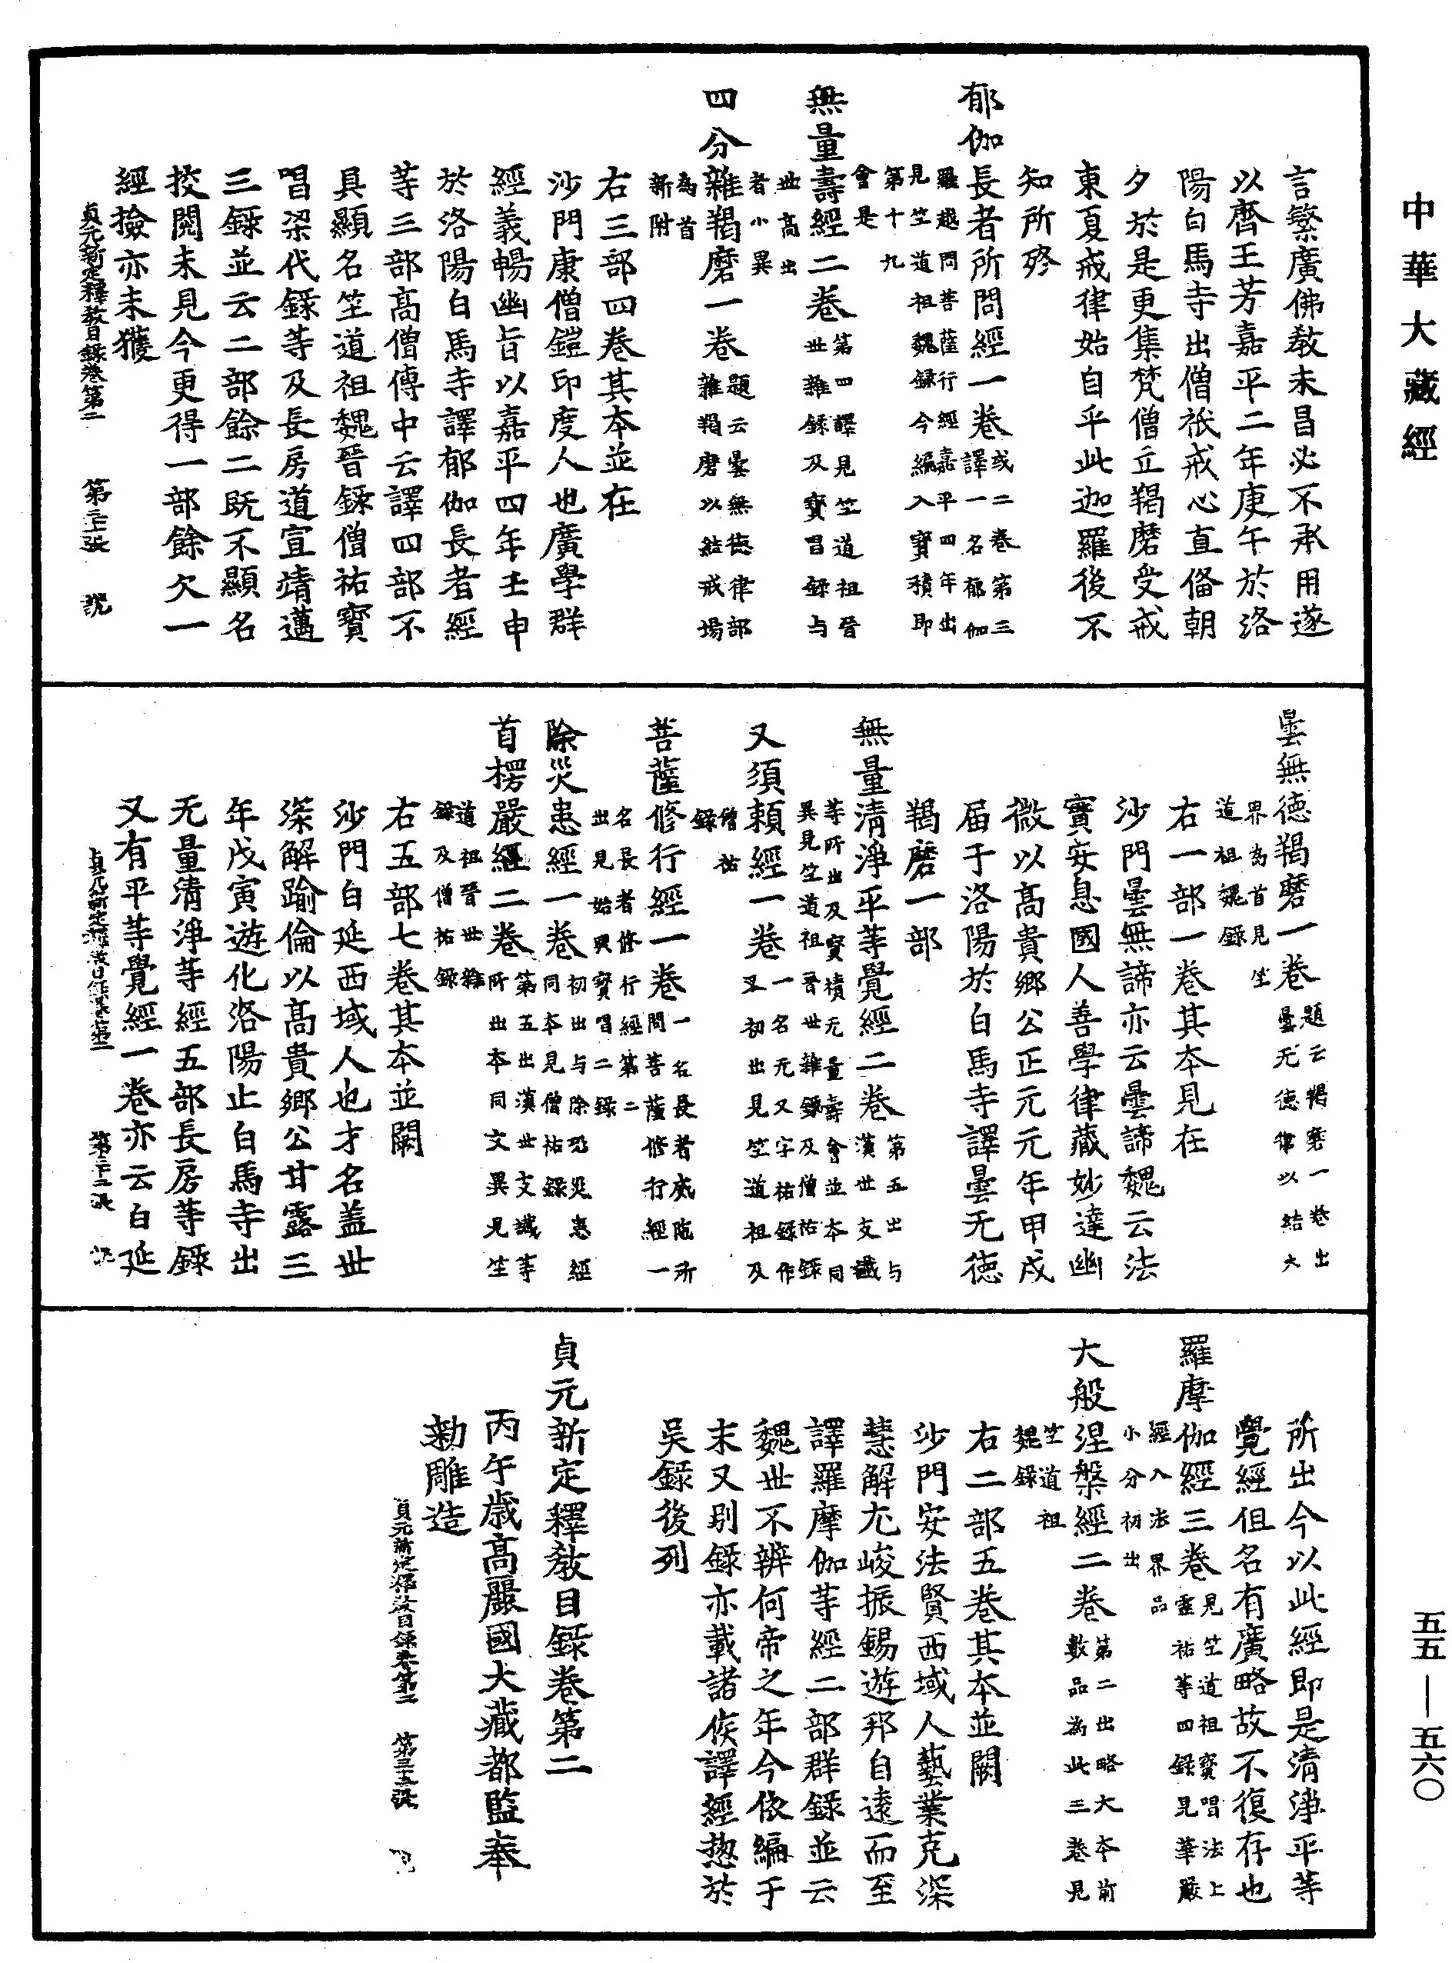 中華大藏經
言繁廣佛教未昌必不承用遂
以齊王芳嘉平二年庚午於洛
陽白馬寺出僧祇戒心直俻朝
夕於是更集梵僧立羯磨受戒
東夏戒律始自乎此迦羅後不
知所終
郁伽長者所問經一卷或二卷第三譯一名郁伽
羅越問菩薩行經嘉平四年出見竺道祖魏録今編入寶積即第十九會是
無量壽經二卷第四譯見竺道祖晉世雜録及寶唱録与
世高出者小異
四分雜羯磨一卷題云曇無德律部雜羯磨以結戒場
為首新附
右三部四卷其本並在
沙門康僧鎧印度人也廣學群
經義暢幽旨以嘉平四年壬申
於洛陽白馬寺譯郁伽長者經
等三部高僧傳中云譯四部不
具顯名竺道祖魏晉録僧祐寶
唱梁代録等及長房道宣靖邁
三録並云二部餘二既不顯名
挍閱未見今更得一部餘欠一
經撿亦未獲
貞元新定釋教目録卷第二
曇無德羯磨一卷題云羯磨一卷出曇无德律以結大
界為首見竺道祖魏録
右一部一卷其本見在
沙門曇無諦亦云曇諦魏云法
實安息國人善學律藏妙達幽
微以高貴鄉公正元元年甲戌
届于洛陽於白馬寺譯曇无德
羯磨一部
無量清淨平等覺經二卷第五出与漢世支讖
等所出及寶積无量壽會並本同異見竺道祖晉世雜録及僧祐録
又須頼經一卷一名无又字祐録作又初出見竺道祖及
僧祐録
菩薩修行經一卷一名長者威陁所問菩薩修行經一
名長者修行經第二出見始興寶唱二録
除災患經一卷初出与除恐災患經同本見僧祐録
首楞嚴經二卷第五出漢世支讖等所出本同文異見竺
道祖晉世雜録及僧祐録
右五部七卷其本並闕
沙門白延西域人也才名盖世
深解踰倫以高貴鄉公甘露三
年戊寅遊化洛陽止白馬寺出
无量清淨等經五部長房等録
又有平等覺經一卷亦云白延
所出今以此經即是清淨平等
覺經但名有廣略故不復存也
羅摩伽經三卷見竺道祖寶唱法上靈祐等四録見華嚴
經入法界品小分初出
大般涅槃經二卷第二出略大本前數品為此三卷見
竺道祖魏録
右二部五卷其本並闕
沙門安法賢西域人藝業克深
慧解尤峻振錫遊邦自遠而至
譯羅摩伽等經二部群録並云
魏世不辨何帝之年今依編于
末又別録亦載諸失譯經揔於
吳録後列
貞元新定釋教目録卷第二
丙午歲高麗國大藏都監奉
勑雕造
貞元新定釋教目録卷第二
五五—五六〇